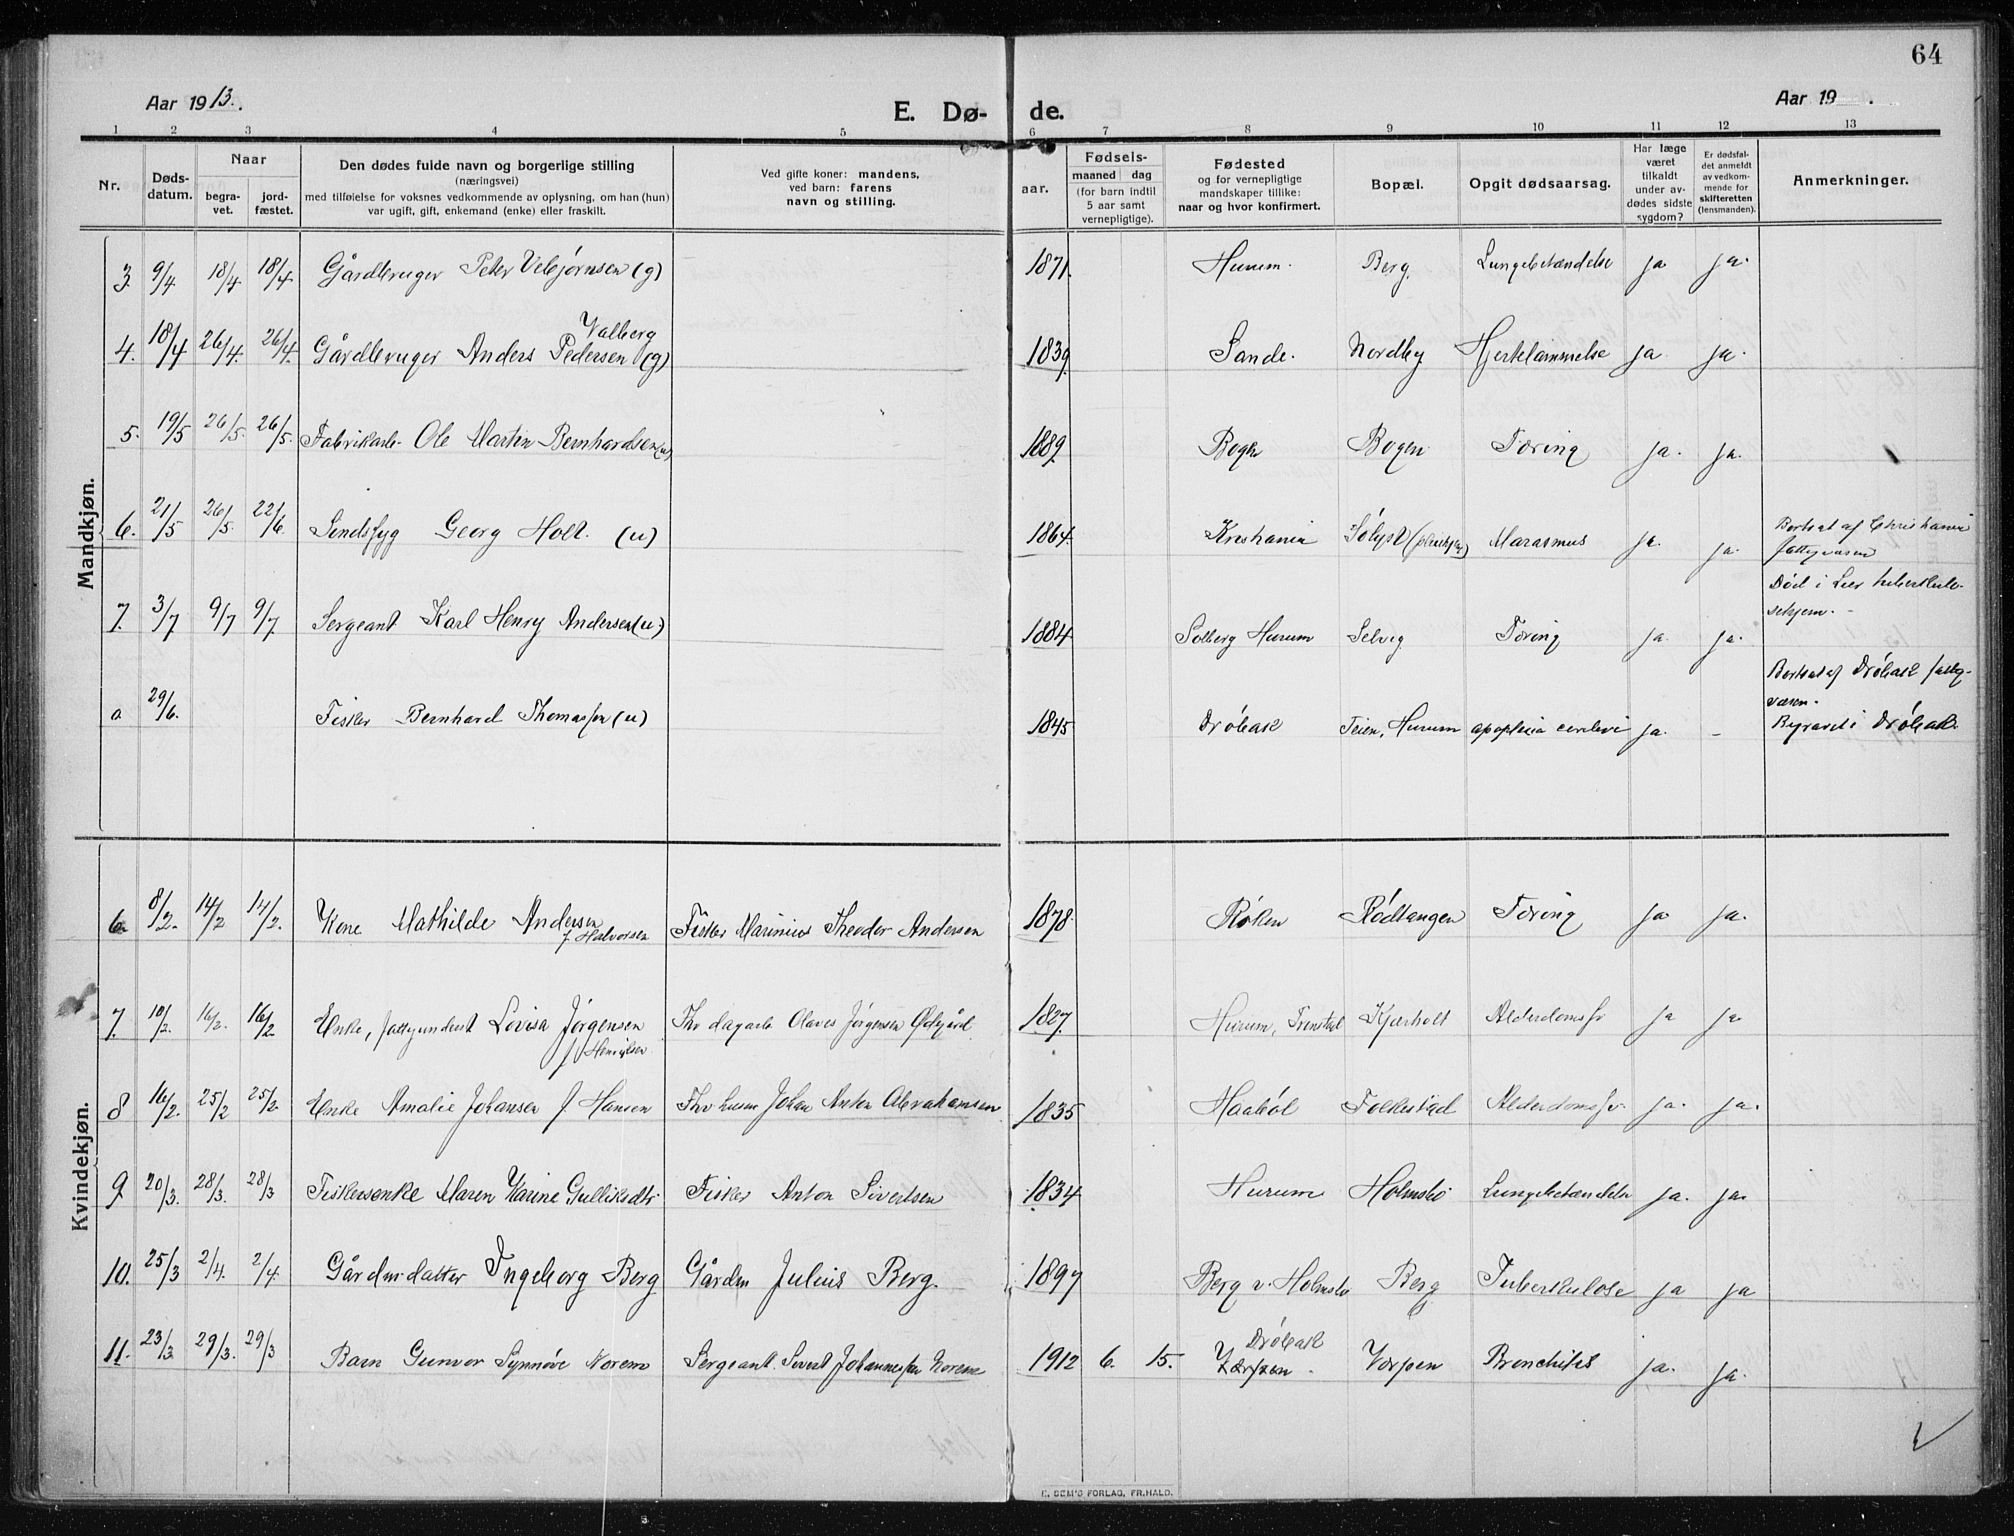 64
Aar 1913.
E. Dø-
de.
Aar 19 .
1 2 3 4 5 6 7 8 9 10 11 12 13
Nr.
Døds-
datum.
Naar
begra-
vet.
jord-
fæstet.
Den dødes fulde navn og borgerlige stilling
(næringsvei)
med tilføielse for voksnes vedkommende av oplysning, om han (hun)
var ugift, gift, enkemand (enke) eller fraskilt.
Ved gifte koner: mandens,
ved barn: farens
navn og stilling.
aar.
Fødsels-
maaned dag
(for barn indtil
5 aar samt
vernepligtige).
Fødested
og for vernepligtige
mandskaper tillike:
naar og hvor konfirmert.
Bopæl.
Opgit dødsaarsag.
Har læge
været
tilkaldt
under av-
dødes sidste
sygdom?
Er dødsfal-
det anmeldt
av vedkom-
mende for
skifteretten
(lensmanden).
Anmerkninger.
Mandkjøn.
3 9/4 18/4 18/4 Gårdbruger Peter Vebjørnsen (g) 1871. Hurum. Berg Lungebetændelse ja ja.
Valberg
4. 18/4 26/4. 26/4. Gårdbruger Anders Pedersen (g) 1839. Sande. Nordby Hjertelammelse ja ja.
5. 19/5 26/5. 26/5. Fabrikarb. Ole Martin Bernhardsen (u) 1889. Bogen Tæring ja. ja.
6. 21/5 26/5. 22/6. Sindssyg Georg Holt. (u) 1864. Kristiania Sølyst Marasmus ja. ja. Bortsat af Christiania
fattigvæsen
7. 3/7 9/7 9/7 Sergeant Karl Henry Andersen (u.) 1884. Solberg Hurum Selvig Tæring ja. ja. Død i Lier tuberkulo-
sehjem.
0 29/6. Fisker Bernhard Thomassen (u) 1845. Drøbak Teien, Hurum apoplexia cerebri ja. - Bortsat af Drøbak fattig-
væsen.
Begravet i Drøbak.
Kvindekjøn.
6. 8/2. 14/2 14/2. Kone Mathilde Andersen
f. Halvorsen
Fisker Marinius Theodor Andersen 1878. Røken Rødtangen Tæring ja ja.
7. 10/2. 16/2. 16/2 Enke, fattigunderst Lovisa Jørgensen
f. Henriksen
Fhv dagarb Olaves Jørgensen Ødegård 1827. Hurum, Kjærholt Alderdomssv ja ja
8 16/2. 25/2 25/2. Enke Amalie Johansen f Hansen Fhv husm Johan Anton Abrahamsen 1835 Haabøl Folkestad Alderdomssv. ja. ja.
9. 20/3. 28/3. 28/3 Fiskersenke Maren Karine Gulliksdtr Fisker Anton Sivertsen 1834 Hurum Holmsbo Lungebetændelse ja. ja.
10. 25/3 2/4. 2/4. Gårdm.datter Ingeborg Berg Gårdm Julius Berg. 1897 Berg v. Holmsbo Berg Tuberkulose ja ja
11. 23/3. 29/3. 29/3 Barn Gunvor Synnøve Norem Sergeant Sivert Johannessen Norem 1912 6. 15. Drøbak
Værpen. Værpen Bronchitis ja. ja.
E. SEM'S FORLAG, FR.HALD.